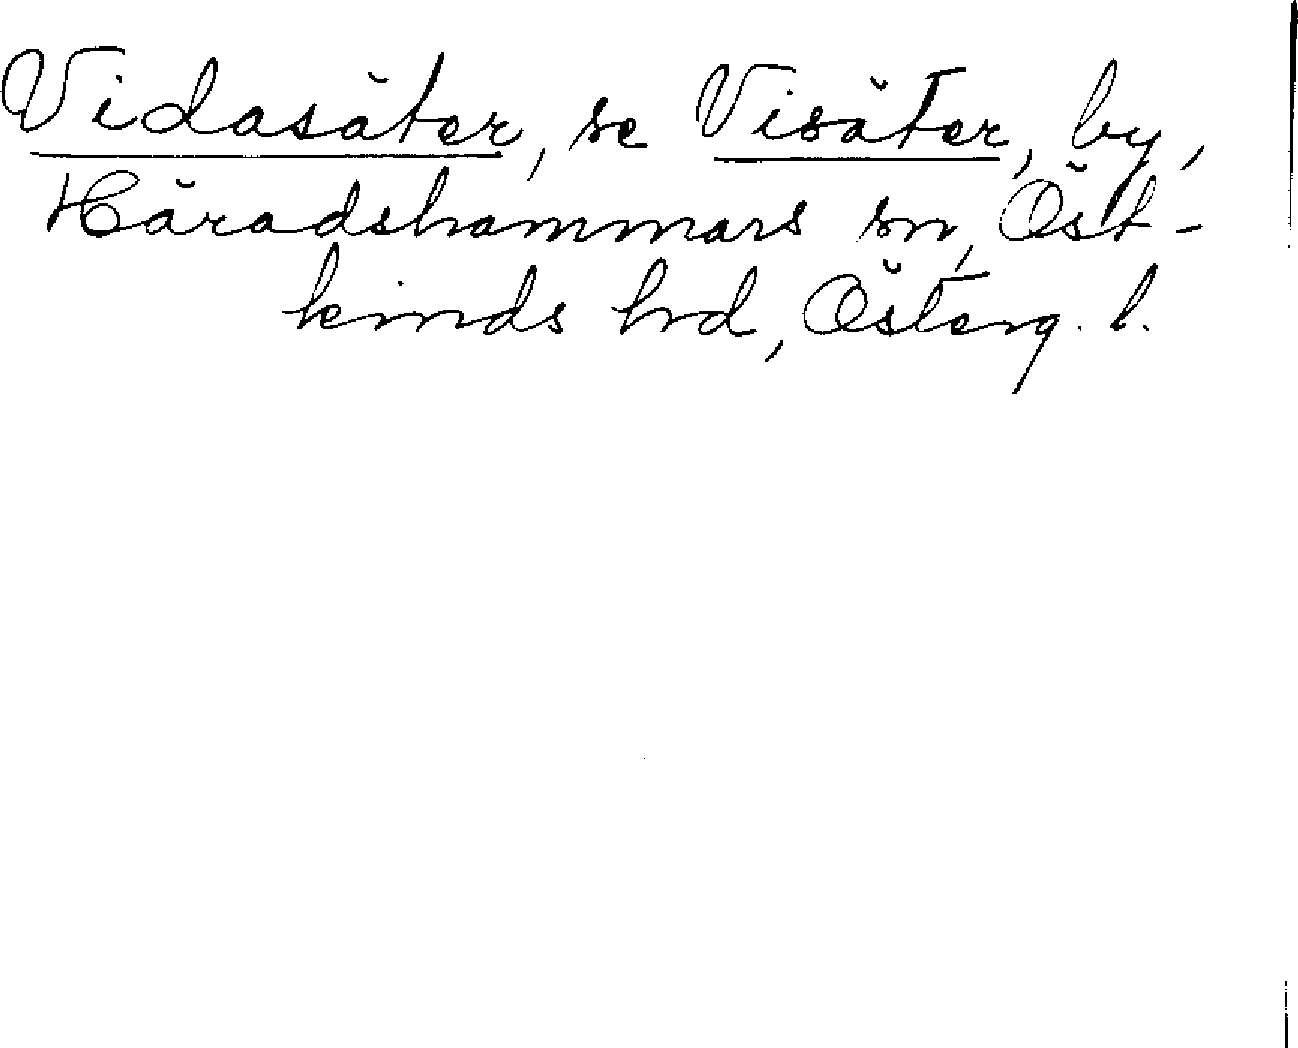 Vidasäter, se Visäter, by,
Häradshammars sn, Öst-
kinds hd, Österg. l.